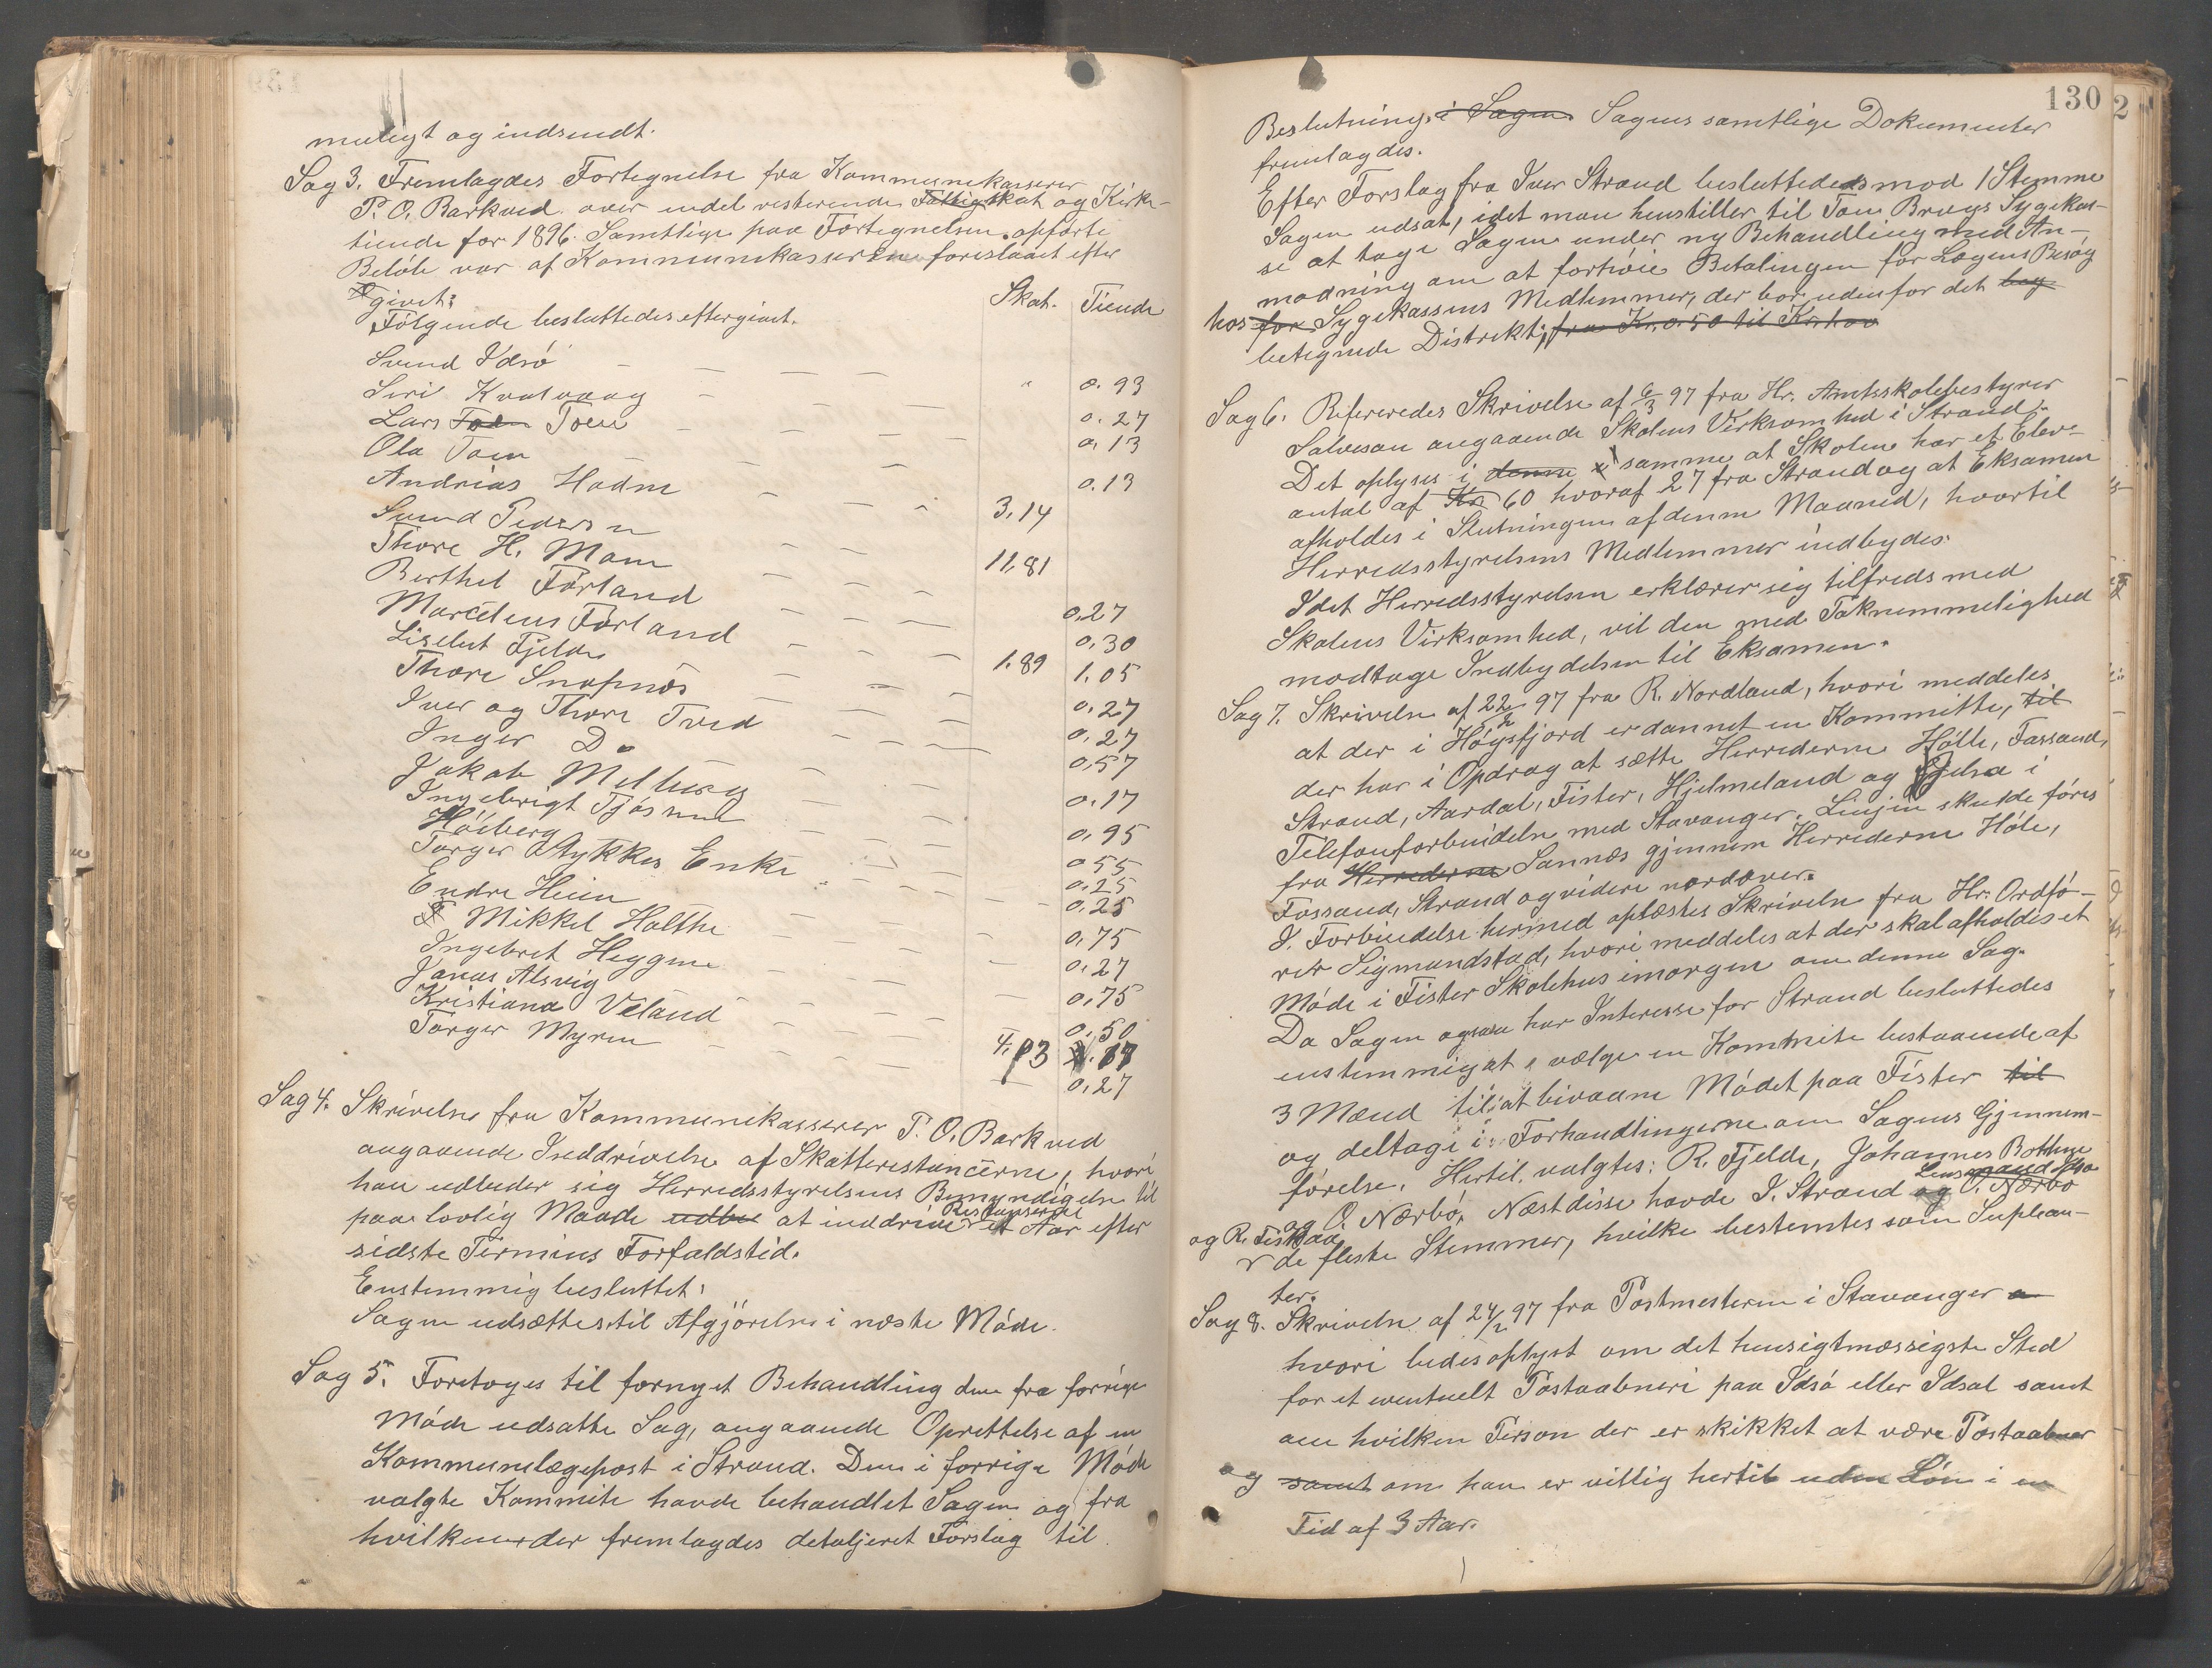 muligt og indsendt.
Sag 3. Fremlagdes Fortegnelse fra Kommunekasserer
P. O. Barkved over endel resterende Fattigskat og Kirke-
tiende for 1896. Samtlige paa Fortegnelsen opførte
Beløb var af Kommunekassereren foreslaaet efter
givet:
Skat. Tiende
Følgende besluttedes eftergivet.
Svend Idsø — — — " 0.93
Siri Kvalvaag — — — 0.27
Lars Toen Toen — — — 0,13
Ola Toen — — — 0.13
Andreas Hadne — — " 3,14
Svend Pedersen — — — 11,81
Thore H. Moen — — — 0.27
Berthel Førland — — — 0,30
Marcelius Førland — — 1.89 1.05
Liselut Fjelde — — — 0,27
Thore Snopnæs — — — 0,27
Iver og Thore Tved — — — 0,57
Inger Do — — — 0.17
Jakob Melberg — — — 0,95
Ingebrigt Tjøsnme — — — 0 55
Høiberg 0.25
Torger Stykkes Enke — — — 0.25
Endre Heien — — — 0,75
Mikkel Holthe — — — 0,27
Ingebret Heggene — — — 0,75
Jonas Alsvig — — — 0,50
Kristiana Veland — — 4,13
Torger Myren — — — 0,27
Sag 4. Skrivelse fra Kommunekasserer P. O. Barkved
angaaende Inddrivelse af Skatterestancerne, hvori
han udbeder sig Herredsstyrelsens Bemyndigelse til
Restanserne
paa lovlig Maade udbe at inddrive et Aar efter
sidste Termins Forfaldstid.
Enstemmig besluttet:
Sagen udsættes til Afgjørelse i næste Møde.
Sag 5. Foretoges til fornyet Behandling den fra forrige
Møde udsatte Sag, angaaende Oprettelse af en
Kommunelægepost i Strand. Den i forrige Møde
valgte Kommite havde behandlet Sagen og fra
hvilken der fremlagdes detaljeret Forslag til
130
Beslutning i Sagen. Sagens samtlige Dokumenter
fremlagdes.
Efter Forslag fra Iver Strand besluttedes mod 1 Stemme
Sagen udsat, idet man henstiller til Tou Brugs Sygekas-
se at tage Sagen under ny Behandling med An-
modning om at forhøie Betalingen for Lægens Besøg
hos for Sygekassens Medlemmer, der bor udenfor det beg
betegnede Distrikt, fra Kr. 0.50 til Kr. hov
Sag 6. Refereredes Skrivelse af 6/3 97 fra Hr. Amtsskolebestyrer
Salvesen angaaende Skolens Virksomhed i Strand.
Det oplyses i denne i samme at Skolen har et Elev-
antal af Kr 60 hvoraf 27 fra Strand og at Eksamen
afholdes i Slutningen af denne Maaned, hvortil
Herredsstyrelsens Medlemmer indbydes.
Idet Herredsstyrelsen erklærer sig tilfreds med
Skolens Virksomhed, vil den med Taknemmelighed
modtage Indbydelsen til Eksamen.
Sag 7. Skrivelse af 22/2 97 fra R. Nordland, hvori meddeles
at der i Høgsfjord er dannet en Kommitte, til
der har i Opdrag at sætte Herrederne Høle, Fossand,
Strand, Aardal, Fister, Hjelmeland og Jelsa i
Telefonforbindelse med Stavanger. Linjen skulde føres
fra Herrederne Sannæs gjennem Herrederne Høle,
Fossand, Strand og videre nordover.
I Forbindelse hermed oplæstes Skrivelse fra Hr. Ordfø-
rer Sigmundstad, hvori meddeles at der skal afholdes et
Møde i Fister Skolehus imorgen om denne Sag.
Da Sagen ogsaa har Interesse for Strand besluttedes
enstemmig at vælge en Kommite bestaaende af
3 Mænd til at bivaane Mødet paa Fister til
og deltage i Forhandlingerne om Sagens Gjennem-
førelse. Hertil valgtes: R. Fjelde, Johannes Bothne
Lensmand Idsø
og O. Nærbø. Næst disse havde I. Strand og O. Nærbø
og R. Fiskaa
de fleste Stemmer, hvilke bestemtes som Suplean-
ter.
Sag 8. Skrivelse af 24/2 97 fra Postmesteren i Stavanger
hvori bedes oplyst om det hensigtmæssigste Sted
for et eventuelt Postaabneri paa Idsø eller Idsal samt
om hvilken Person der er skikket at være Postaabner
og samt om han er villig hertil uden Løn i en
Tid af 3 Aar.